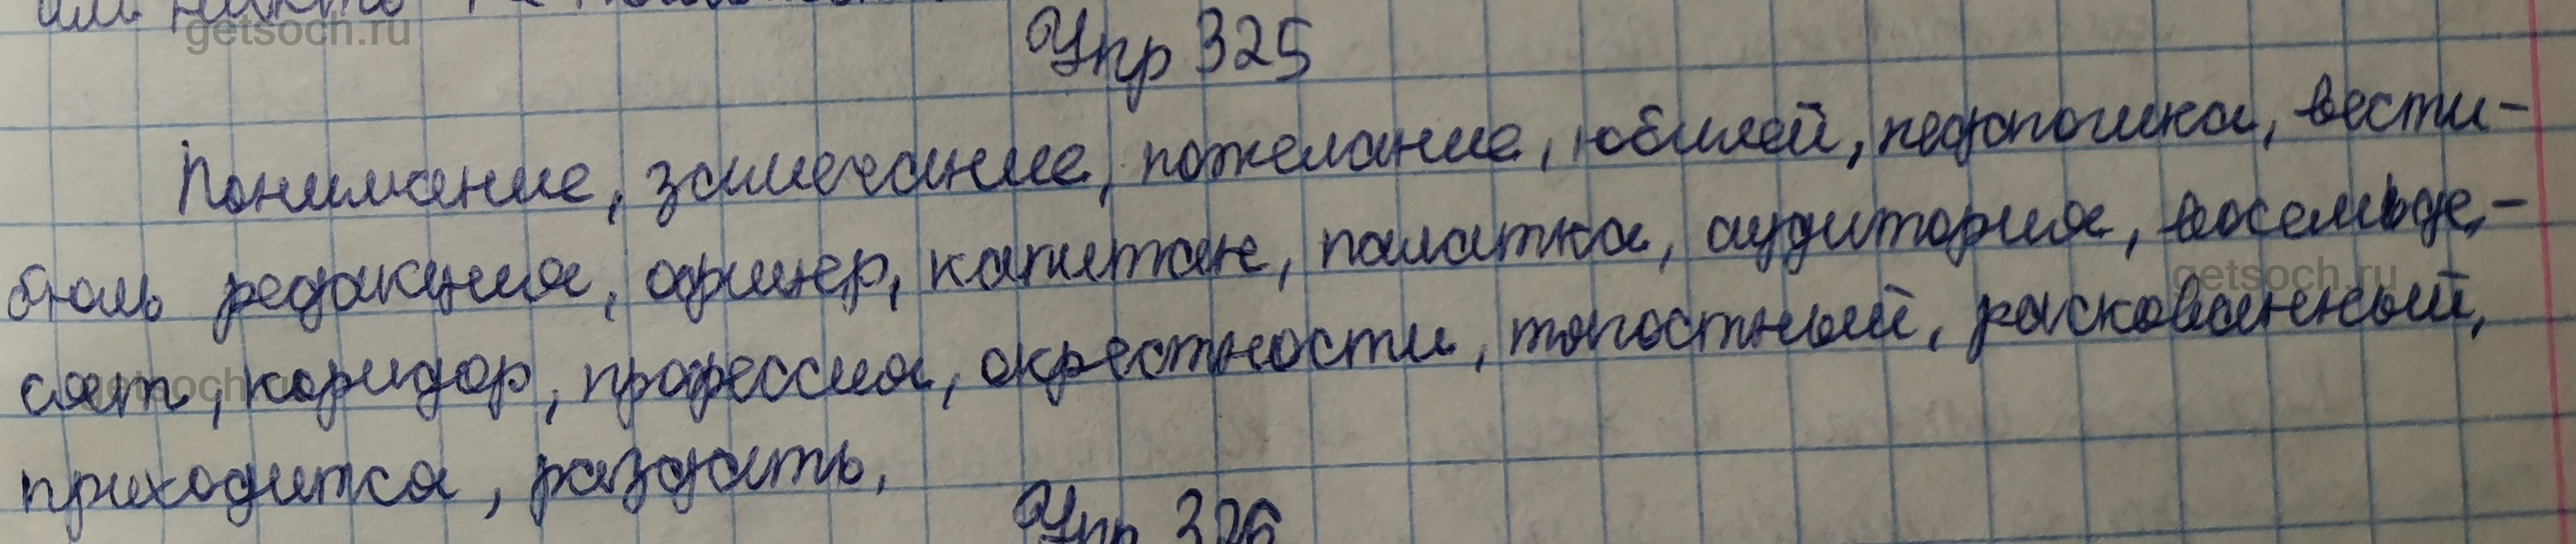 getsoch.ru
Упр 325
Понимание, замечание, пожелание, юбилей, педагогика, вести-
бюль редакция, офицер, капитан, палатка, аудитория, восемьде-
getsoch.ru
сят, коридор, профессия, окрестности, тягостный, раскованный,
приходится, раздать,
Упр 326